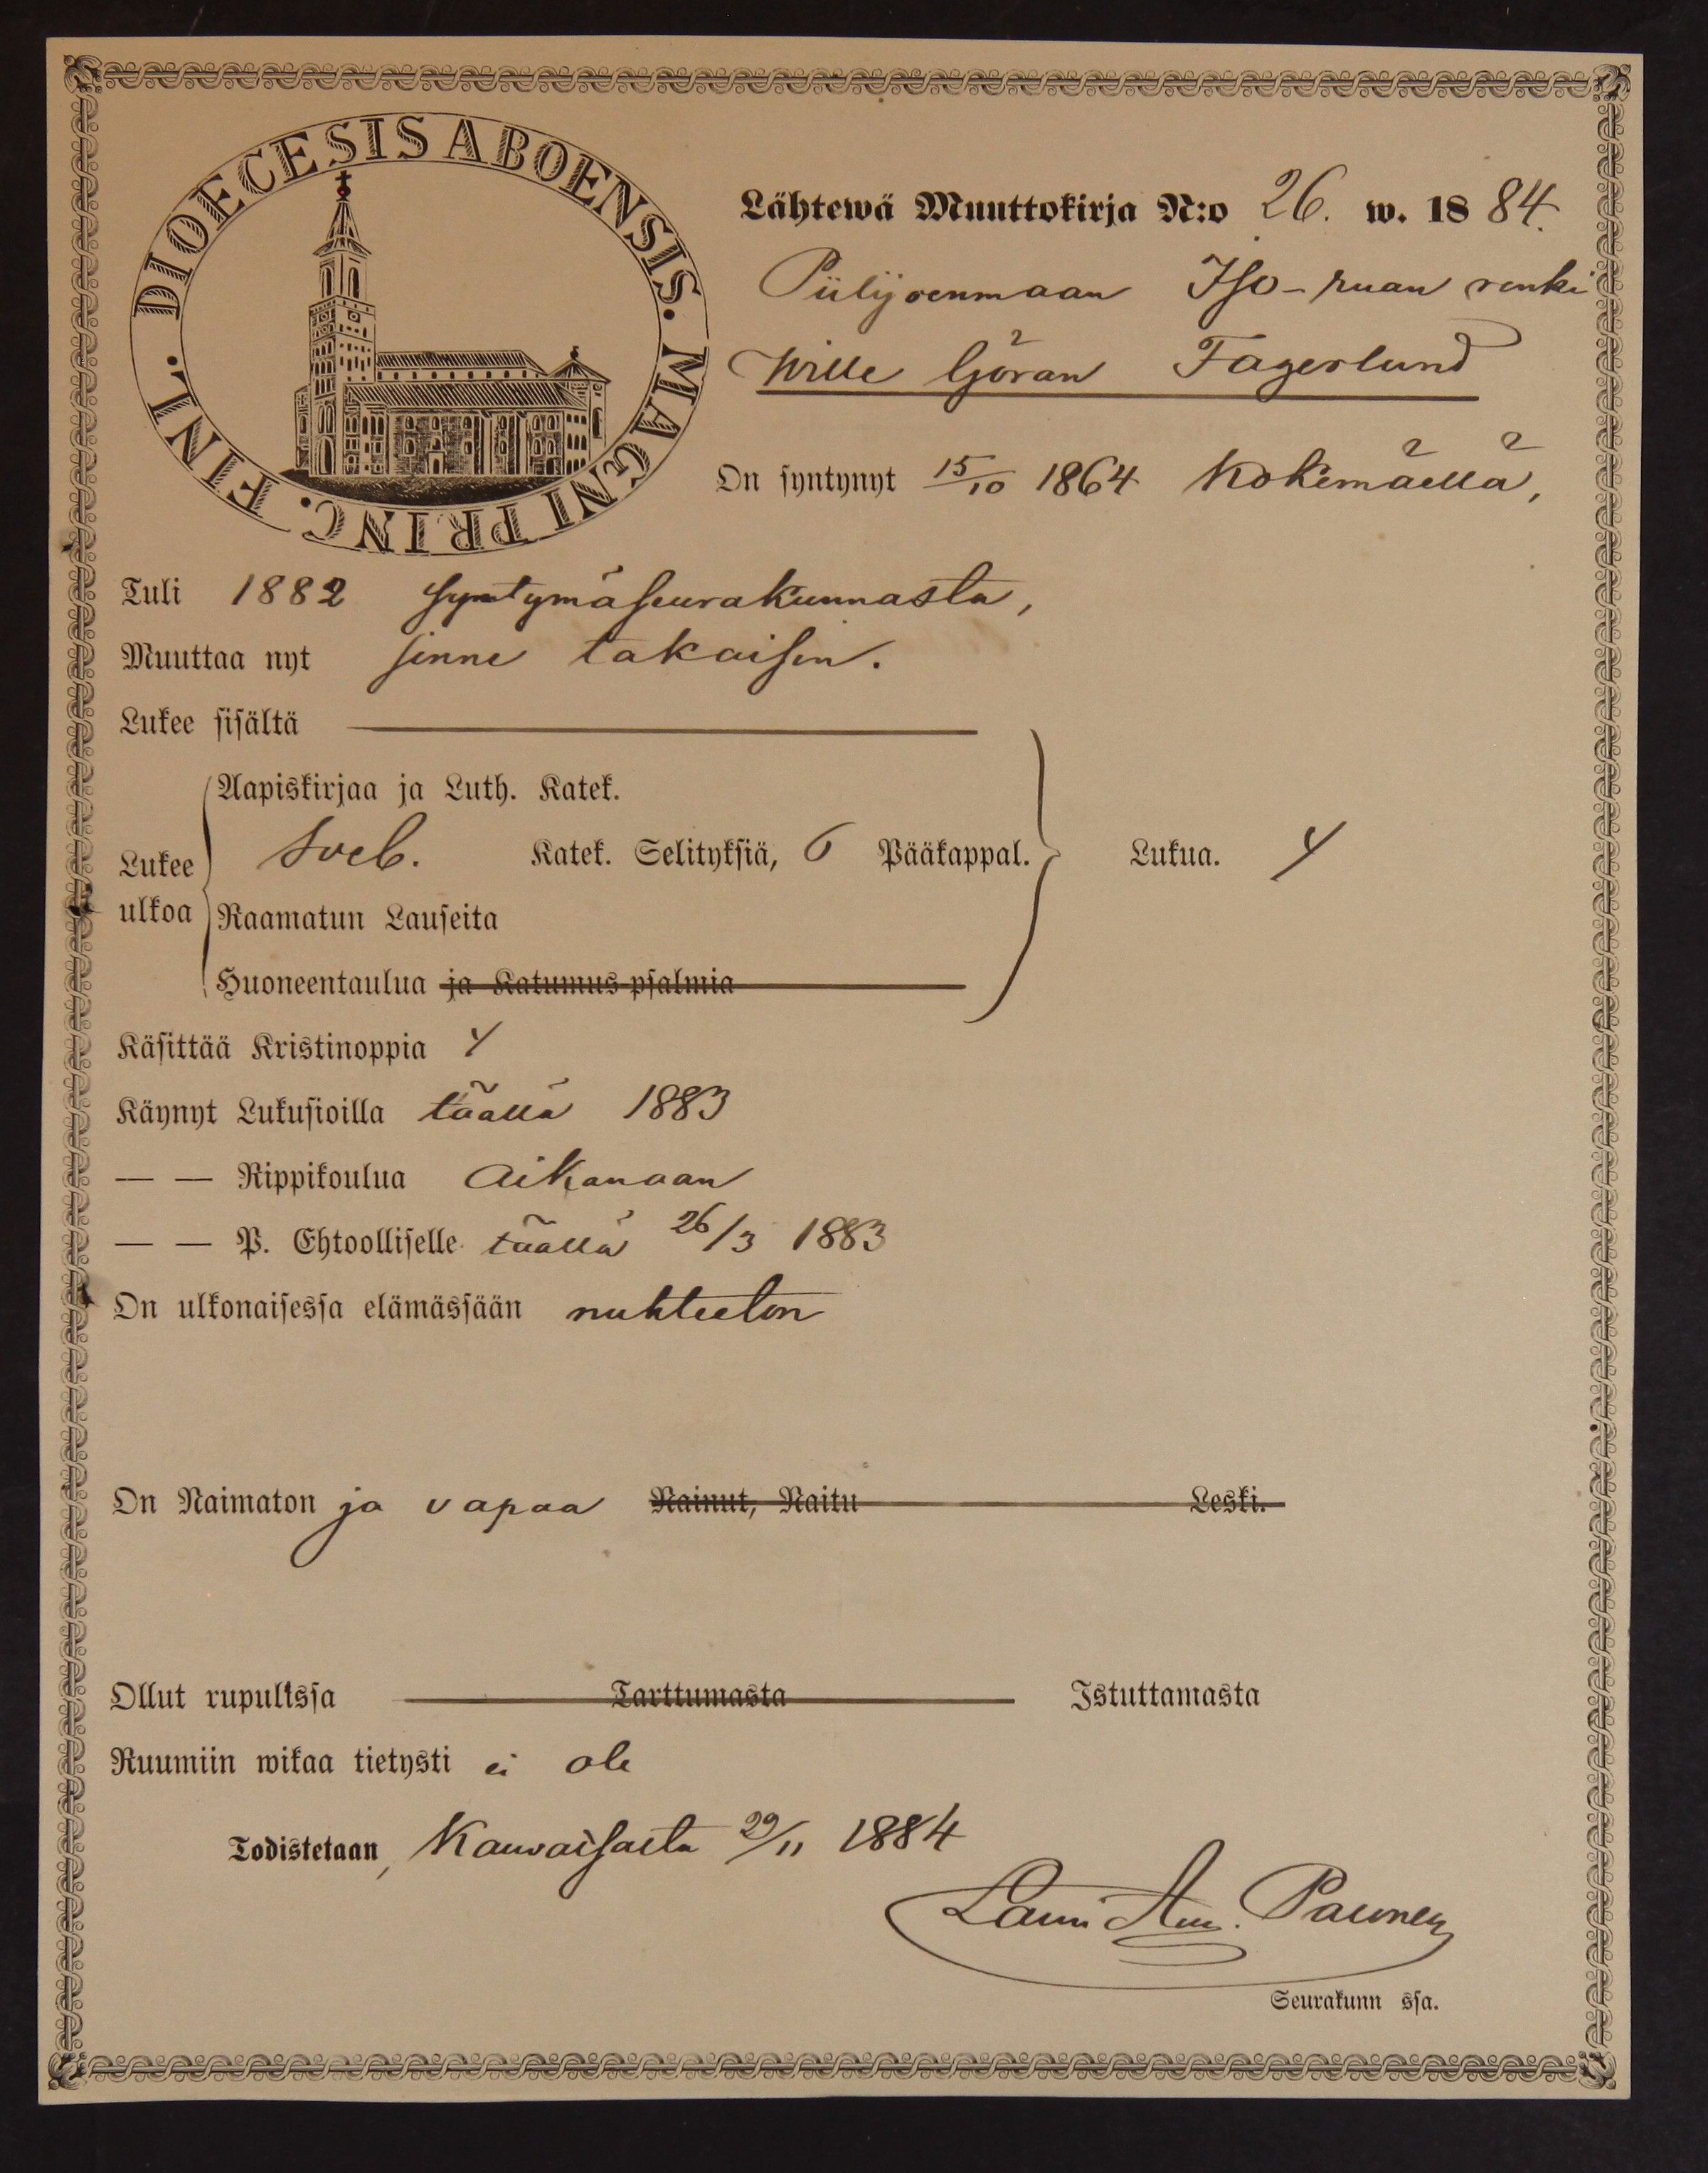 DIOECESIS ABOENSIS. MAGNI PRINC. FINL.
Lähtewä Muuttokirja N:o 26. w. 1884.
Piilijoenmaan Iso-ruan renki
Wille Göran Fagerlund
On syntynyt 15/10 1864 Kokemäellä,
Tuli 1882 syntymäseurakunnasta,
Muuttaa nyt sinne takaisin.
Lukee sisältä
Aapiskirjaa ja Luth. Katek.
Lukee ulkoa
Sveb. Katek. Selityksiä, 6 Pääkappal. Lukua. y
Raamatun Lauseita
Huoneentaulua ja Katumus-psalmia
Käsittää Kristinoppia y
Käynyt Lukusioilla täällä 1883
— — Rippikoulua aikanaan
— — P. Ehtoolliselle täällä 26/3 1883
On ulkonaisessa elämässään nuhteeton
On Naimaton ja vapaa Nainut, Naitu Leski.
Ollut rupulissa Tarttumasta Istuttamasta
Ruumiin wikaa tietysti ei ole
Todistetaan, Kauvatsasta 29/11 1884
Lauri Paunen
Seurakunn ssa.